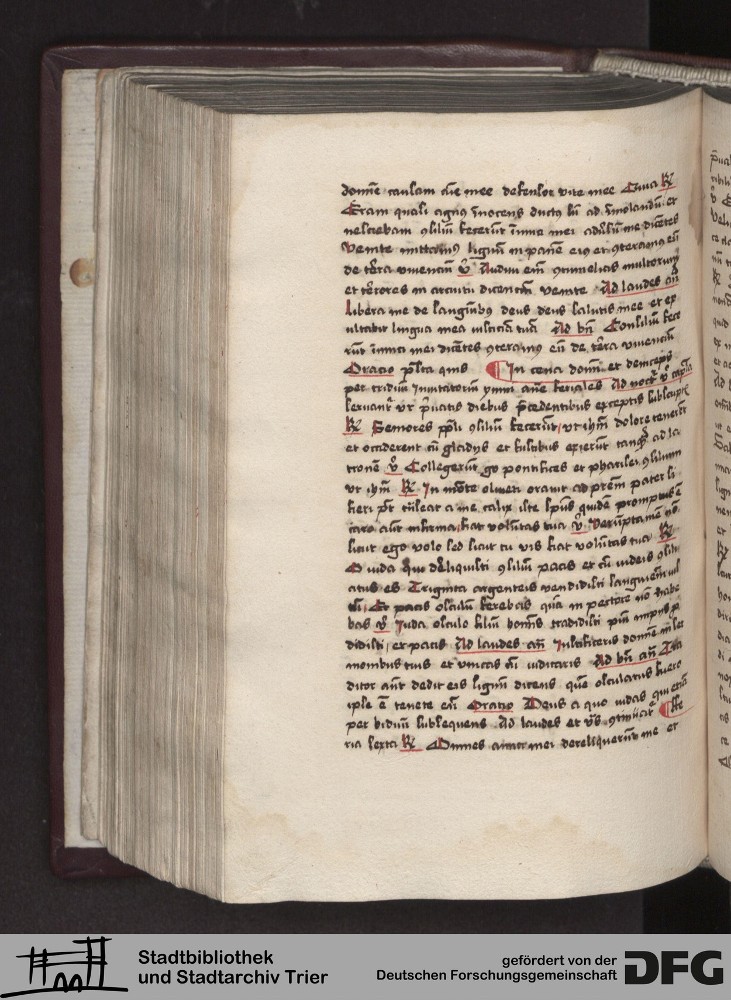 domine causam aīe mee defensor vite mee Circa R/
Eram quasi agnus īnocens ductus sū ad īmolandū et
nesciebam ɔsiliū fecerūt inimici mei adv̄sū me dicētes
Venite mittamus lignū in panē eius et ɔteramus eū
de t̄ra viventiū v̄ Audivi em̄ ɔtumelias multorum
et t̄rores in circuitu dicentiū venite Ad laudes an̄
Libera me de sanguibus deus deus salutis mee et ex
ultabit lingua mea iusticiā tuā Ad bn̄ Consiliū fece
rūt inimici mei dicētes ɔteramus eū de t̄ra viventiū
Oratio p̄sta qums In cena domini et deinceps
per triduū Invitatoriū ymni
servant᷑ ut p̄vatis diebus p̄cedentibus exceptis subscriptis
R/ Seniores ppl̄i ɔsiliū fecerūt ut ihm̄ dolore tenerēt
et occiderent cū gladijs et fustibus exierūt tanq̄ ad la
tronē v̄ Collegerūt go pontifices et pharisei ɔsilium
ut ihm̄ R/ In monte oliveti oravit ad prēm pater si
fieri pt̄ trāseat a me calix iste sp̄us quidē promptus ē
caro aūt infirma fiat volūtas tua v̄ Verūptamē nō
sicut ego volo sed sicut tu vis fiat volūtas tua R/
O iuda qui dereliquisti ɔsiliū pacis et cū iudeis ɔsili
atus es Triginta argenteis vendidisti sanguinem ius
tū Et pacis osculū ferebas quā in pectore nō habe
bas v̄ Iuda osculo filiū hominis tradidisti
didisti et pacis Ad laudes an̄ Iustificeris domine in ser
monibus tuis et vincas cū iudicaris Ad bn̄ an̄ Tra
ditor aūt dedit eis signū dicens quē osculatus fuero
ipse ē tenete eū Oratio Deus a quo iudas
per biduū subsequens Ad laudes et Fe
ria sexta R/ Omnes amici mei dereliquerūt me et
Stadtbibliothek
und Stadtarchiv Trier
gefördert von der
Deutschen Forschungsgemeinschaft
DFG